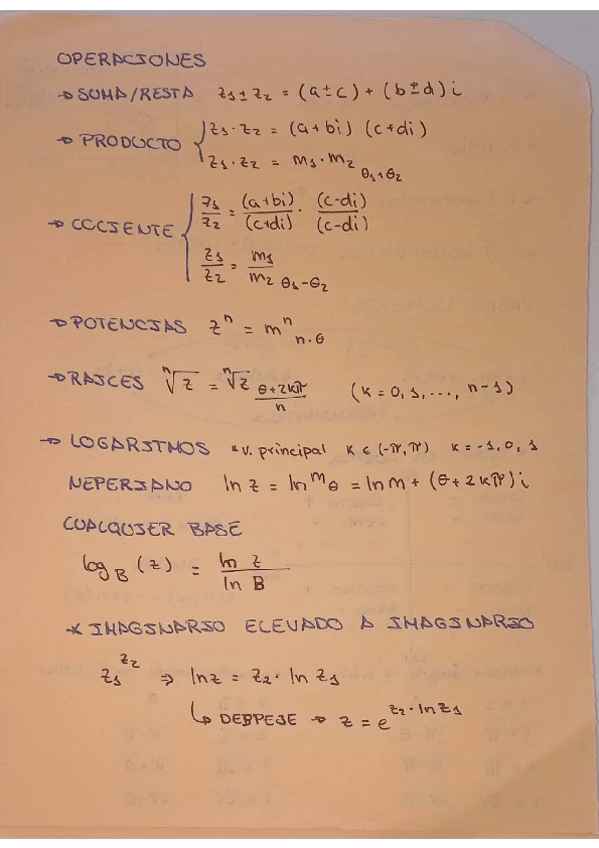 OPERACIONES
→ SUMA/RESTA z₁ ± z₂ = (a ± c) + (b ± d) i
→ PRODUCTO { z₁ · z₂ = (a + bi) (c + di)
z₁ · z₂ = m₁ · m₂ θ₁+θ₂
→ COCIENTE { z₁/z₂ = (a+bi)/(c+di) · (c-di)/(c-di)
z₁/z₂ = m₁/m₂ θ₁-θ₂
→ POTENCIAS zⁿ = mⁿ n·θ
→ RAICES ⁿ√z = ⁿ√z (θ+2kπ)/n (k = 0, 1, ..., n-1)
→ LOGARITMOS * v. principal k ∈ (-π, π) k = -1, 0, 1
NEPERIANO ln z = ln m θ = ln m + (θ + 2kπ) i
CUALQUIER BASE
log_B (z) = ln z / ln B
* IMAGINARIO ELEVADO A IMAGINARIO
z₁^z₂ ⇒ ln z = z₂ · ln z₁
↳ DESPEJE → z = e^(z₂ · ln z₁)